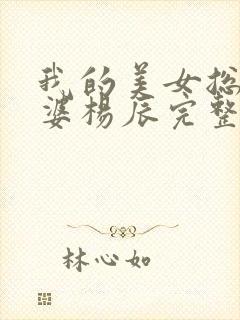 我的美女总
婆杨辰完整
林心如